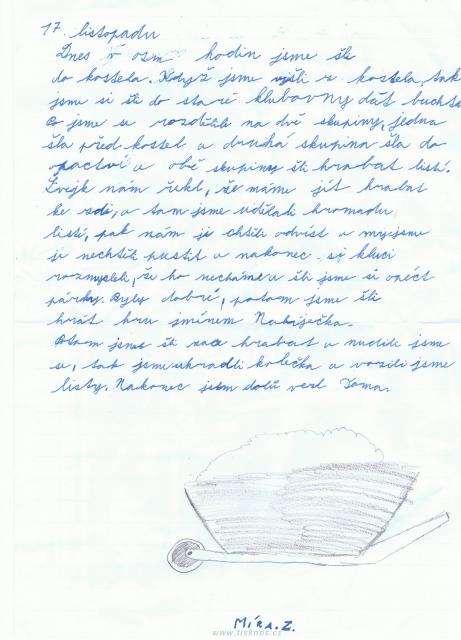 17. listopadu
Dnes v osm hodin jsme šli
do kostela. Když jsme vyšli z kostela, tak
jsme si šli do staré klubovny dát buchtu
jsme se rozdělili na dvě skupiny, jedna
šla před kostel a druhá skupina šla do
opactví a obě skupiny šli hrabat listí.
Švejk nám řekl, že máme jít hrabat
ke zdi, a tam jsme udělali hromadu
listí, pak nám ji chtěli odvést a my jsme
ji nechtěli pustit a nakonec si kluci
rozmysleli, že ho necháme a šli jsme si opéct
párky. Byly dobré, potom jsme šli
hrát hru jménem Nabíječka.
Potom jsme šli zace hrabat a nudili jsme
se, tak jsme ukradli kolečka a vozili jsme
listy. Nakonec jsem dolů vezl Toma.
Míra.Z.
www.tisknos.cz